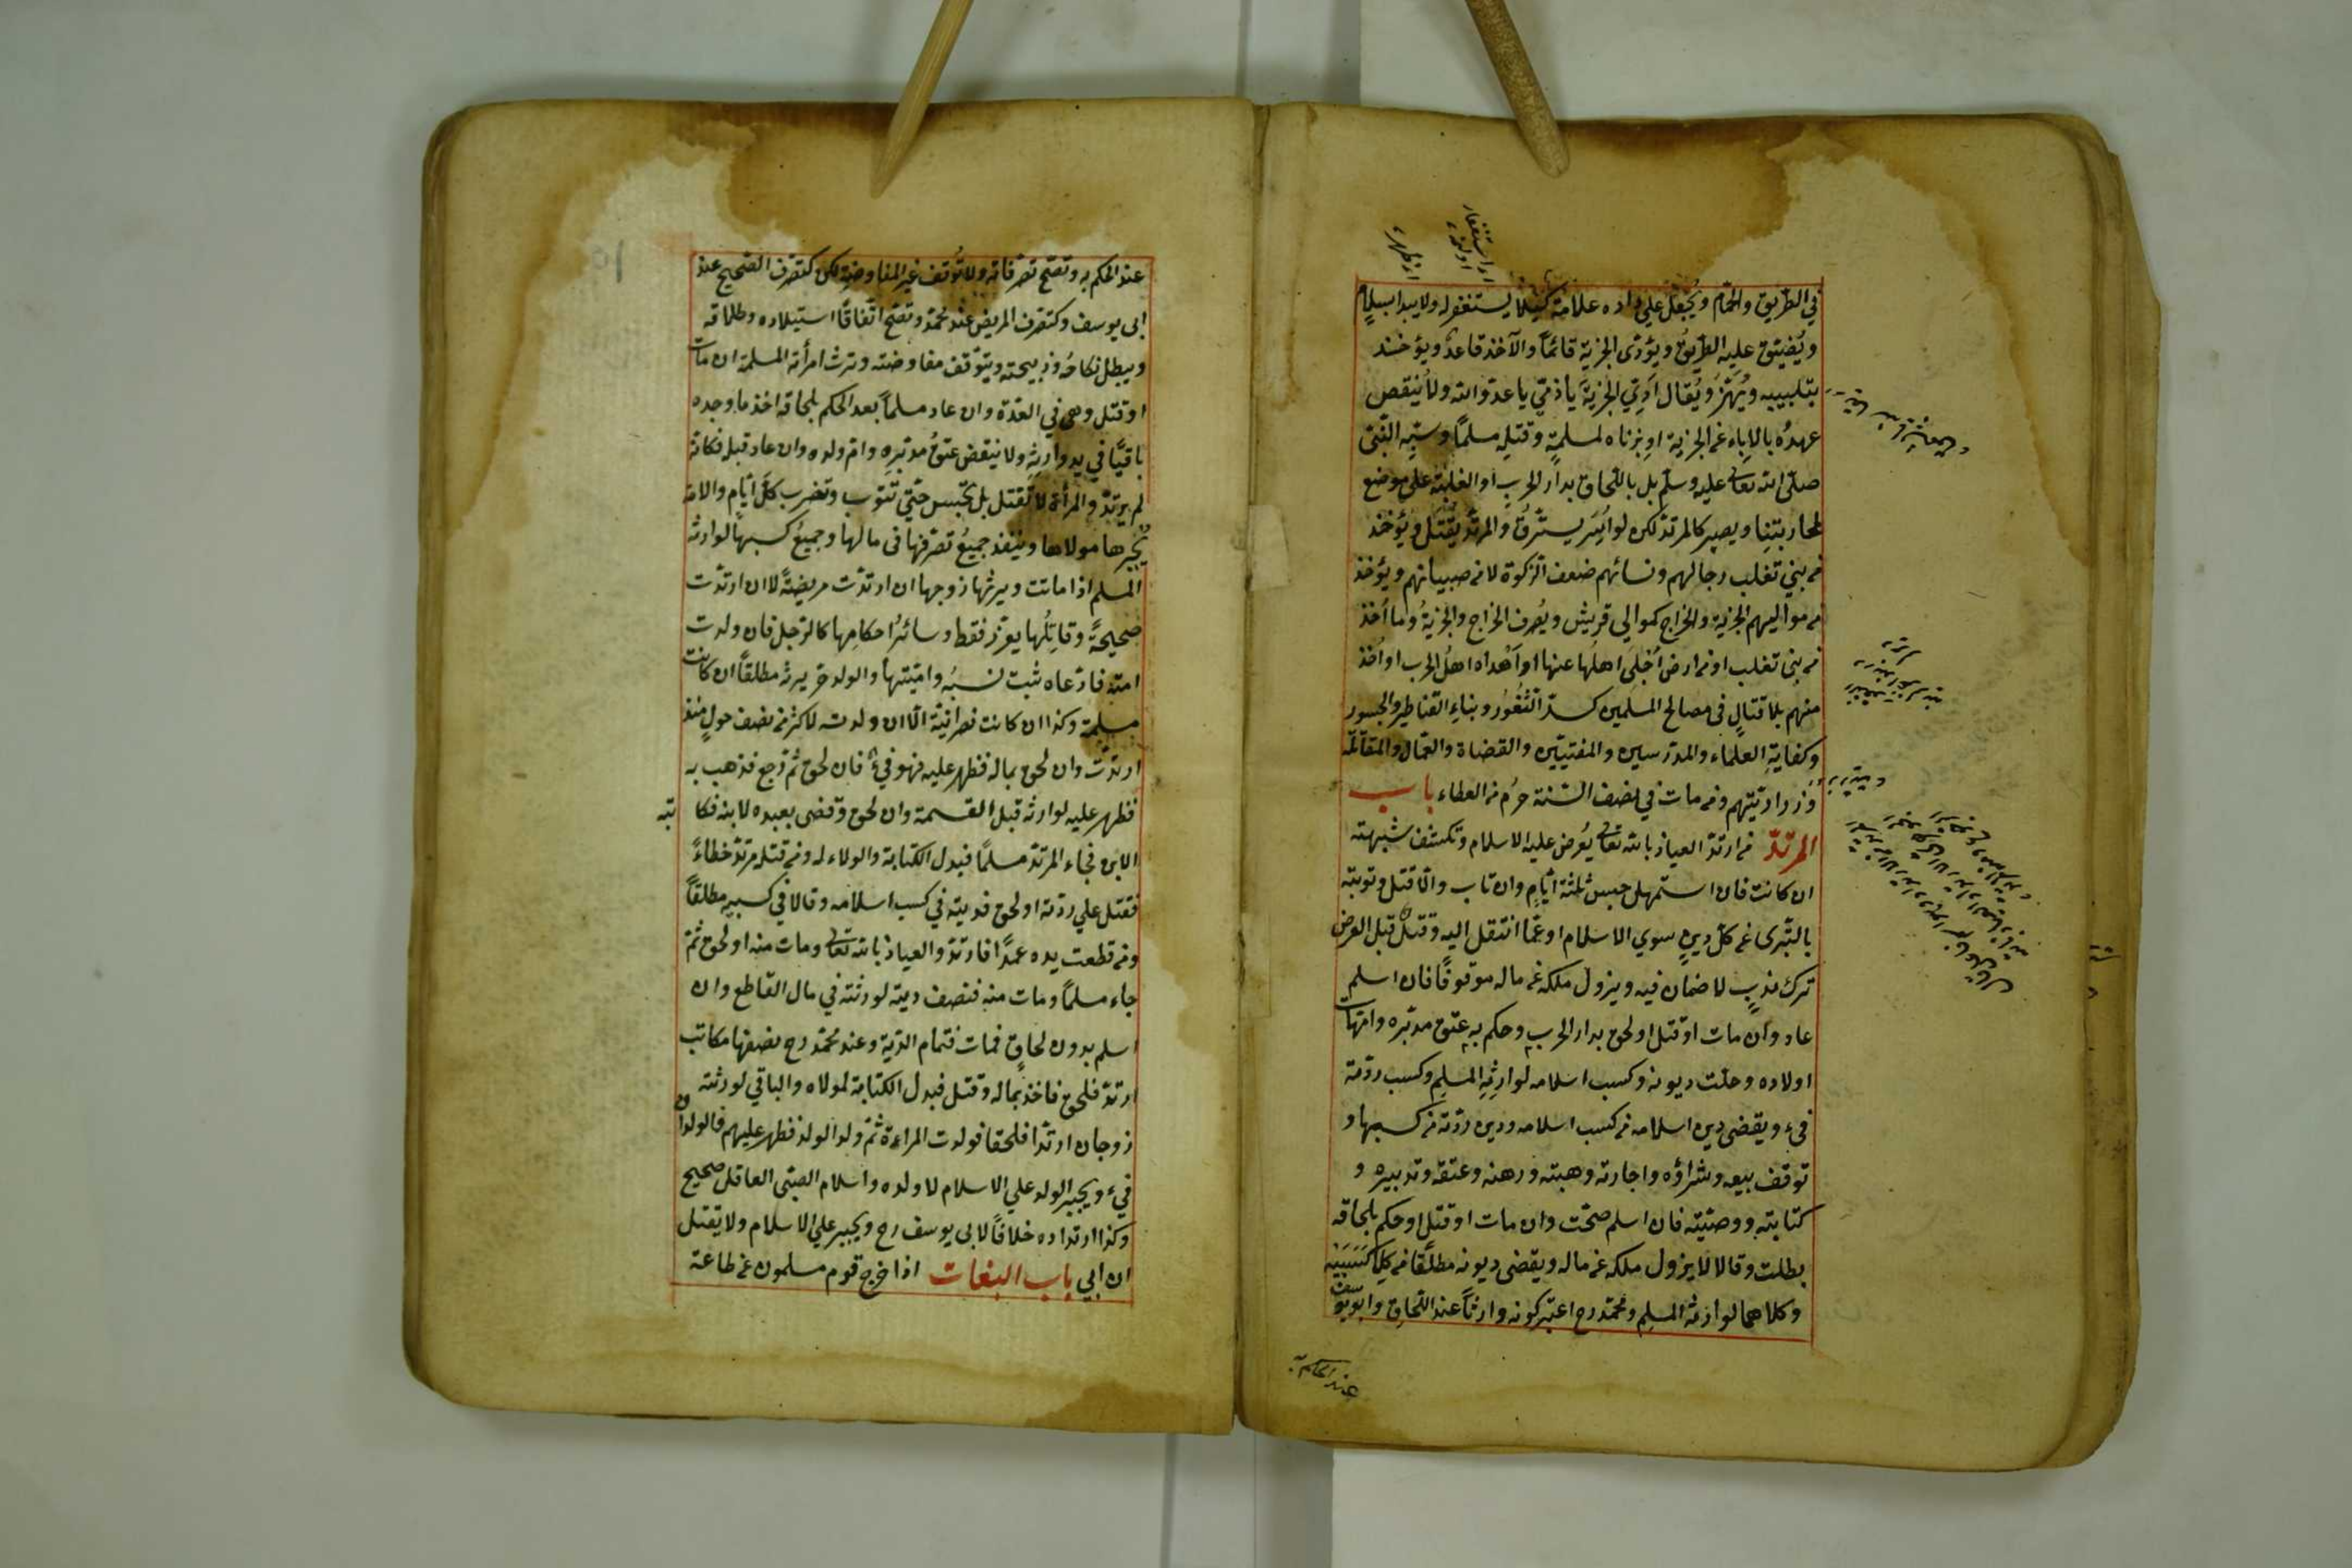 في الطريق والحمام ويجعل علي داره علامة كيلا يستغفر له ولا يبدا بسلام
ويضيق عليه الطريق ويؤدى الجزية قائما والآخذ قاعد ويؤخذ
بتلبيبه ويهز ويقال ادي الجزية يا ذمي يا عدو الله ولا ينقض
عهده بالاباء عن الجزية او بزناه لمسلمة وقتله مسلما وسبه النبي
صلى الله تعالى عليه وسلم بل باللحاق بدار الحرب او الغلبة علي موضع
لمحاربتنا ويصير كالمرتد لكن لو اسر يسترق والمرتد يقتل ويؤخذ
من بني تغلب رجالهم ونسائهم ضعف الزكوة لا من صبيانهم ويؤخذ
من مواليهم الجزية والخراج كموالي قريش ويصرف الخراج والجزية وما أخذ
من بني تغلب او من ارض أجلى اهلها عنها او أهداه اهل الحرب او أخذ
منهم بلا قتال في مصالح المسلمين كسد الثغور وبناء القناطير والجسور
وكفاية العلماء والمدرسين والمفتيين والقضاة والعمال والمقاتلة
وذراريهم ومن مات في نصف السنة حرم من العطاء باب
المرتد من ارتد العياذ بالله تعالى يعرض عليه الاسلام وتكشف شبهته
ان كانت فان استمهل حبس ثلثة ايام وان تاب والا قتل وتوبته
بالتبرى عن كل دين سوي الاسلام او عما انتقل اليه وقتله قبل العرض
ترك ندب لا ضمان فيه ويزول ملكه عن ماله موقوفا فان اسلم
عاد وان مات او قتل او لحق بدار الحرب وحكم به عتق مدبره وامهات
اولاده وحلت ديونه وكسب اسلامه لوارثه المسلم وكسب ردته
فيء ويقضى دين اسلامه من كسب اسلامه ودين ردته من كسبها و
توقف بيعه وشراؤه واجارته وهبته ورهنه وعتقه وتدبيره و
كتابته ووصيته فان اسلم صحت وان مات او قتل او حكم بلحاقه
بطلت وقالا لا يزول ملكه عن ماله ويقضى ديونه مطلقا من كلا كسبيه
وكلاهما لوارثه المسلم ومحمد رح اعتبر كونه وارثا عند اللحاق وابو يوسف
عند الحكم به
عند الحكم به وتصح تصرفاته ولا توقف غير المفاوضة لكن كتصرف الصحيح عند
ابى يوسف وكتصرف المريض عند محمد وتصح اتفاقا استيلاده وطلاقه
ويبطل نكاحه وذبيحته ويتوقف مفاوضته وترث امرأته المسلمة ان مات
او قتل وهى في العدة وان عاد مسلما بعد الحكم بلحاقه اخذ ما وجده
باقيا في يد وارثه ولا ينقض عتق مدبره وام ولده وان عاد قبله فكانه
لم يرتد والمرأة لا تقتل بل تحبس حتى تتوب وتضرب كل ايام والامة
تجبرها مولاها وينفذ جميع تصرفها فى مالها وجميع كسبها لوارثه
المسلم اذا ماتت ويرثها زوجها ان ارتدت مريضة لا ان ارتدت
صحيحة وقاتلها يعزر فقط وسائر احكامها كالرجل فان ولدت
امته فادعاه ثبت نسبه واميتها والولد حر يرثه مطلقا ان كانت
مسلمة وكذا ان كانت نصرانية الا ان ولدت لاكثر من نصف حول منذ
ارتدت وان لحق بماله فظهر عليه فهو فيء فان لحق ثم رجع فذهب به
فظهر عليه لوارثه قبل القسمة وان لحق وقضى بعبده لابنه فكا تبه
الابن فجاء المرتد مسلما فبدل الكتابة والولاء له ومن قتله مرتد خطاء
فقتل علي ردته او لحق فديته في كسب اسلامه وقالا في كسبيه مطلقا
ومن قطعت يده عمدا فارتد والعياذ بالله تعالى ومات منه او لحق ثم
جاء مسلما ومات منه فنصف ديته لورثته في مال القاطع وان
اسلم بدون لحاق فمات فتمام الدية وعند محمد رح نصفها مكاتب
ارتد فلحق فاخذ بماله وقتل فبدل الكتابة لمولاه والباقي لورثته
زوجان ارتدا فلحقا فولدت المراءة ثم ولد الولد فظهر عليهم فالولدان
فيء ويجبر الولد علي الاسلام لا ولده واسلام الصبى العاقل صحيح
وكذا ارتداده خلافا لابى يوسف رح ويجبر علي الاسلام ولا يقتل
ان ابي باب البغات اذا خرج قوم مسلمون عن طاعة